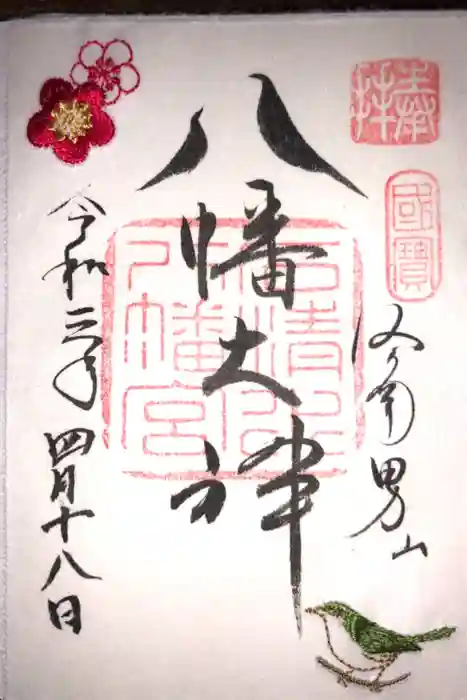 奉拝
國寶
男山
八幡大神
石清水
八幡宮
令和三年 四月十八日